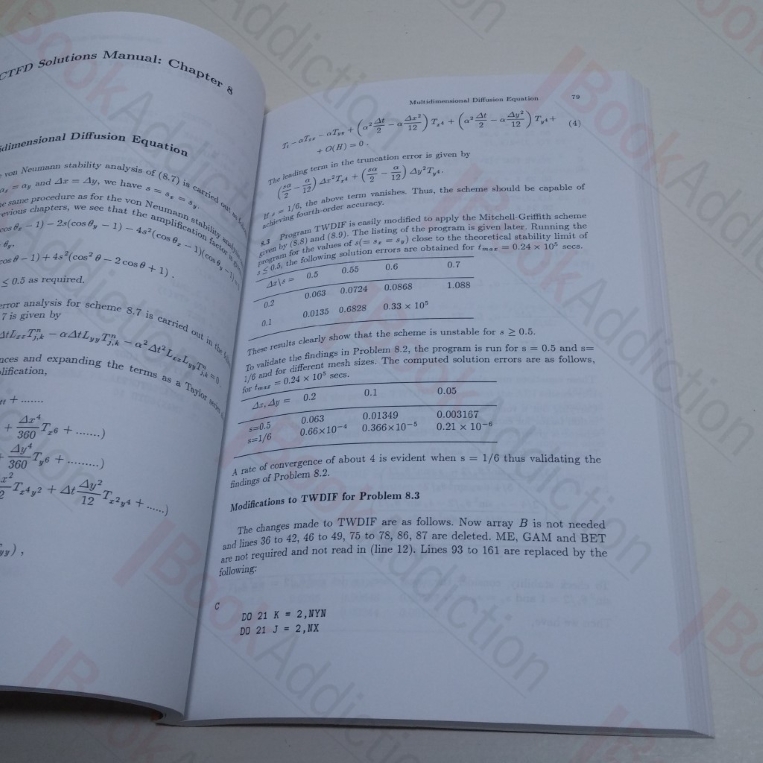 CTFD Solutions Manual: Chapter 8
dimensional Diffusion Equation
von Neumann stability analysis of (8.7) is carried out
= αy and Δx = Δy, we have s = sx = sy.
same procedure as for the von Neumann stability
evious chapters, we see that the amplification factor is
cos θx − 1) − 2s(cos θy − 1) − 4s²(cos θx − 1)(cos θy − 1)
θy,
cos θ − 1) + 4s²(cos² θ − 2 cos θ + 1) ,
≤ 0.5 as required.
error analysis for scheme 8.7 is carried out in the
7 is given by
ΔtLxxTⁿj,k − αΔtLyyTⁿj,k − α²Δt²LxxLyyTⁿj,k = 0
nces and expanding the terms as a Taylor series
lification,
+ .......
+ Δx⁴/360 Tx6 + .......)
Δy⁴/360 Ty6 + .........)
Tx4y2 + Δt Δy²/12 Tx2y4 + ......)
yy) ,
Multidimensional Diffusion Equation 79
Tt − αTxx − αTyy + (α² Δt/2 − α Δx²/12) Tx4 + (α² Δt/2 − α Δy²/12) Ty4 + (4)
+ O(H) = 0 .
The leading term in the truncation error is given by
(sα/2 − α/12) Δx²Tx4 + (sα/2 − α/12) Δy²Ty4.
If s = 1/6, the above term vanishes. Thus, the scheme should be capable of
achieving fourth-order accuracy.
8.3 Program TWDIF is easily modified to apply the Mitchell-Griffith scheme
given by (8.8) and (8.9). The listing of the program is given later. Running the
program for the values of s(= sx = sy) close to the theoretical stability limit of
s ≤ 0.5, the following solution errors are obtained for tmax = 0.24 × 10⁵ secs.
Δx\s = 0.5 0.55 0.6 0.7
0.2 0.063 0.0724 0.0868 1.088
0.1 0.0135 0.6828 0.33 × 10⁵
These results clearly show that the scheme is unstable for s ≥ 0.5.
To validate the findings in Problem 8.2, the program is run for s = 0.5 and s=
1/6 and for different mesh sizes. The computed solution errors are as follows,
for tmax = 0.24 × 10⁵ secs.
Δx, Δy = 0.2 0.1 0.05
s=0.5 0.063 0.01349 0.003167
s=1/6 0.66×10⁻⁴ 0.366×10⁻⁵ 0.21 × 10⁻⁶
A rate of convergence of about 4 is evident when s = 1/6 thus validating the
findings of Problem 8.2.
Modifications to TWDIF for Problem 8.3
The changes made to TWDIF are as follows. Now array B is not needed
and lines 36 to 42, 46 to 49, 75 to 78, 86, 87 are deleted. ME, GAM and BET
are not required and not read in (line 12). Lines 93 to 161 are replaced by the
following:
C
DO 21 K = 2,NYN
DO 21 J = 2,NX
BookAddiction